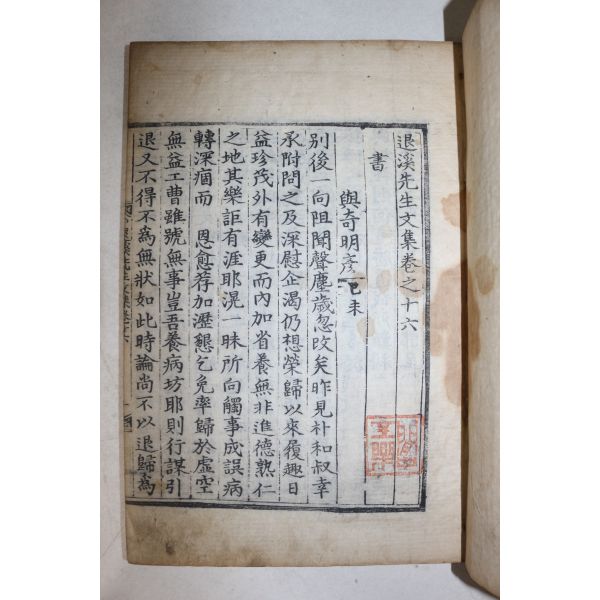 退溪先生文集卷之十六
書
與奇明彦 己未
别後一向阻聞聲塵歲忽改矣昨見朴和叔幸
承附問之及深慰企渴仍想榮歸以來履趣日
益珍茂外有變更而內加省養無非進德熟仁
之地其樂詎有涯耶滉一昧所向觸事成誤病
轉深痼而 恩愈荐加瀝懇乞免率歸於虛空
無益工曹雖號無事豈吾養病坊耶則行謀引
退又不得不爲無狀如此時論尚不以退歸爲